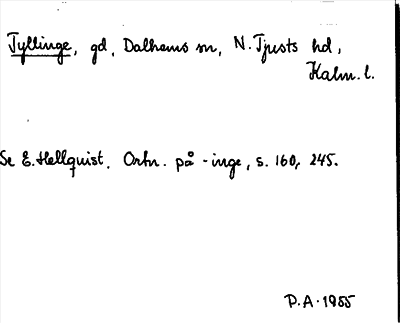 Tyllinge, gd, Dalhems sn, N. Tjusts hd,
Kalm. l.
Se E. Hellquist. Ortn. på -inge, s. 160, 245.
P.A. 1955